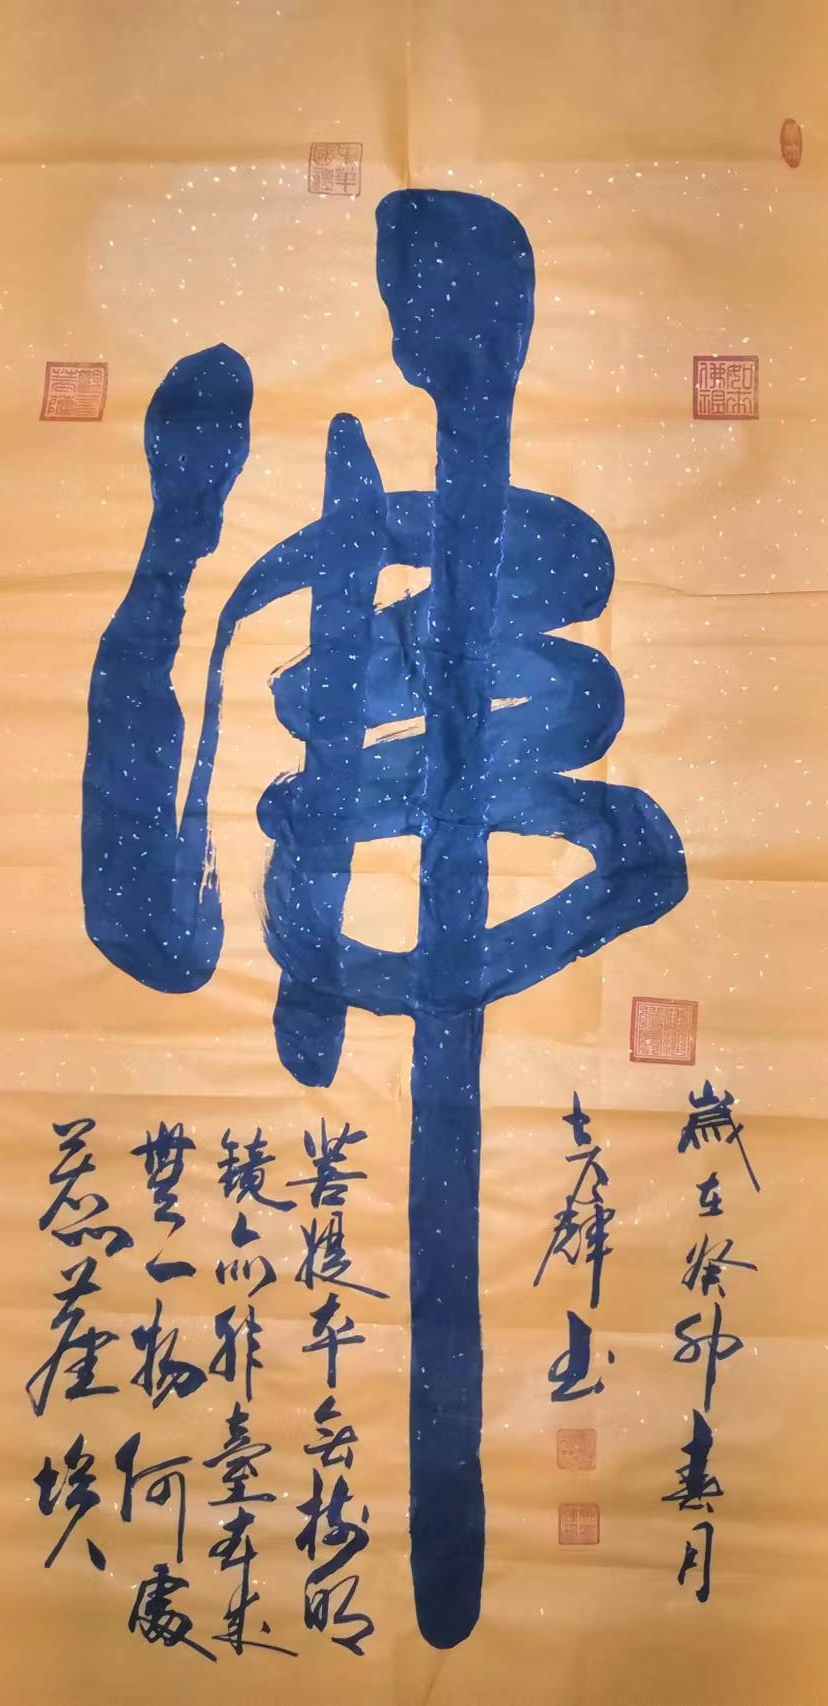 佛
如来佛祖
歲在癸卯春月
輝书
菩提本無樹明
鏡亦非臺本來
無一物何處
惹塵埃